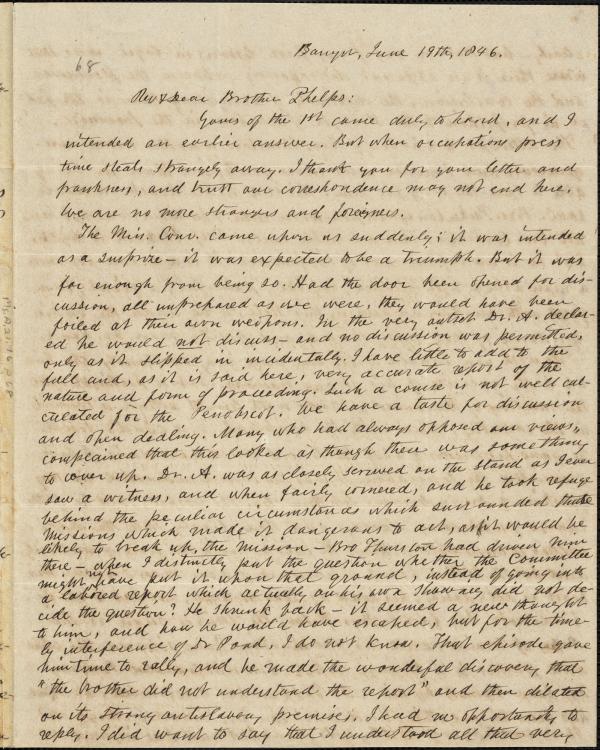 Bangor, June 19th, 1846.
68
Rev & Dear Brother Phelps:
Yours of the 1st came duly to hand, and I
intended an earlier answer. But when occupations press
time steals strangely away. I thank you for your letter and
frankness, and trust our correspondence may not end here.
We are no more strangers and foreigners.
The Miss. Conv. came upon us suddenly; it was intended
as a surprize – it was expected to be a triumph. But it was
far enough from being so. Had the door been opened for dis-
cussion, all unprepared as we were, they would have been
foiled at their own weapons. In the very outset Dr. A. declar-
ed he would not discuss – and no discussion was permitted,
only as it slipped in incidentally. I have little to add to the
full and, as it is said here, very accurate report of the
nature and form of proceeding. Such a course is not well cal-
culated for the Penobscot. We have a taste for discussion
and open dealing. Many who had always opposed our views,
complained that this looked as though there was something
to cover up. Dr. A. was as closely screwed on the stand as I ever
saw a witness, and when fairly cornered, and he took refuge
behind the peculiar circumstances which surrounded those
missions which made it dangerous to act, as it would be
likely to break up, the mission – Bro Thurston had driven him
there – when I distinctly put the question whether the Committee
might not have put it upon that ground, instead of going into
a labored report which actually on his own showing did not de-
cide the question? He shrunk back – it seemed a new thought
to him, and how he would have escaped, but for the time-
ly interference of Dr Pond, I do not know. That episode gave
him time to rally, and he made the wonderful discovery that
"the brother did not understand the report" and then dilated
on its strong antislavery premises. I had no opportunity to
reply. I did want to say that I understood all that very